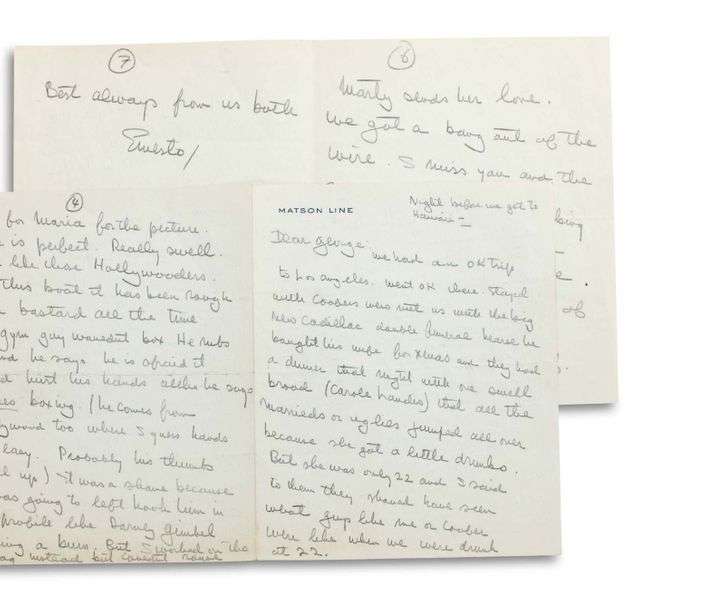 7
Best always from us both
Ernesto/
6
Marty sends her love.
We got a bang out of the
wire. I miss you and the
of
4
for Maria for the picture.
is perfect. Really swell.
like those Hollywooders.
this boat it has been rough
bastard all the time
gym guy wouldnt box He rubs
he says he is afraid it
hurt his hands altho he says
boxing. (he comes from
too where I guess hands
easy. Probably his thumbs
up) It was a shame because
was going to left hook him in
profile like
a bum. But I worked on the
instead but
MATSON LINE
Night before we got to
Hawaii —
Dear George.
We had an OK trip
to Los angeles. Went OK there. Stayed
with Coopers who met us with the big
new Cadillac double funeral hearse he
bought his wife for Xmas and they had
a dinner that night with one swell
broad (Carole Landis) that all the
marrieds or uglies jumped all over
because she got a little drunko.
But she was only 22 and I said
to them they should have seen
what guys like me or Cooper
were like when we were drunk
at 22.